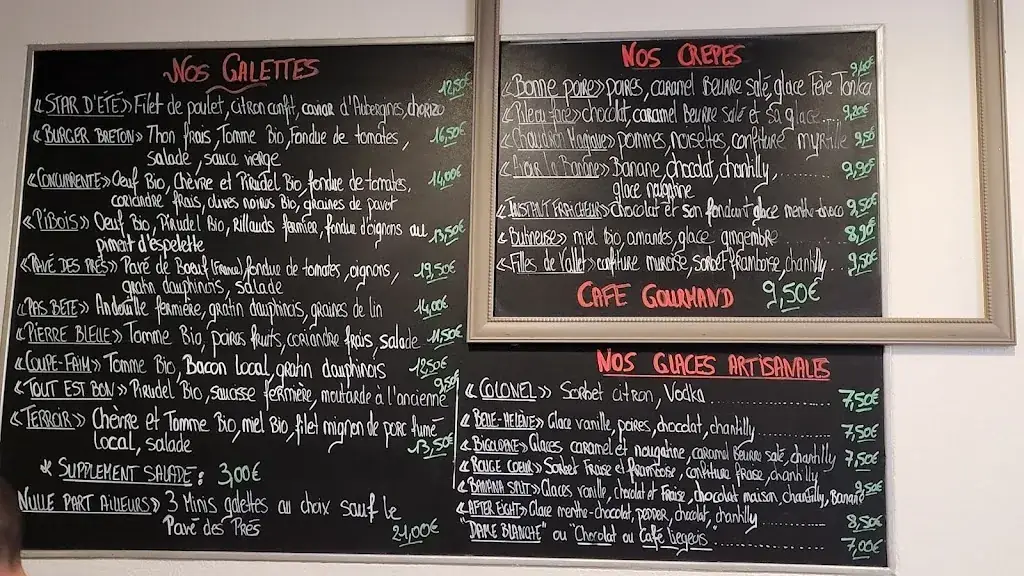 NOS GALETTES
« STAR D'ÉTÉ » Filet de poulet, citron confit, caviar d'Aubergines, chorizo 12,50€
« BURGER BRETON » Thon frais, Tomme Bio, Fondue de tomates, 16,50€
salade, sauce vierge
« CONCURRENTE » Oeuf Bio, Chèvre et Pirudel Bio, fondue de tomates, 14,00€
coriandre frais, olives noires Bio, graines de pavot
« PIBOIS » Oeuf Bio, Pirudel Bio, Rillauds fermier, fondue d'oignons au 13,50€
piment d'espelette
« PAVÉ DES PRÉS » Pavé de Boeuf (France), fondue de tomates, oignons, 19,50€
gratin dauphinois, salade
« PAS BÊTE » Andouille fermière, gratin dauphinois, graines de lin 14,00€
« PIERRE BLEUE » Tomme Bio, poires fruits, coriandre frais, salade 11,50€
« COUPE-FAIM » Tomme Bio, Bacon local, gratin dauphinois 12,50€
« TOUT EST BON » Pirudel Bio, saucisse fermière, moutarde à l'ancienne 9,50€
« TERROIR » Chèvre et Tomme Bio, miel Bio, filet mignon de porc fumé
local, salade 13,50€
* SUPPLEMENT SALADE : 3,00€
NULLE PART AILLEURS » 3 Minis galettes au choix sauf le
Pavé des Prés 21,00€
NOS CREPES
« Bonne poire » poires, caramel Beurre salé, glace Fève Tonka 9,40€
chocolat, caramel Beurre salé et sa glace... 9,20€
pommes, noisettes, confiture myrtille 9,50
Banane, chocolat, chantilly, ........ 9,90€
glace nougatine
« INSTANT FRAICHEUR » Chocolat et son fondant glace menthe-choco 9,50€
« Butineuse » miel bio, amandes, glace gingembre 8,90
« Filles de Vallet » confiture muroise, sorbet framboise, chantilly... 9,50€
CAFE GOURMAND 9,50€
NOS GLACES ARTISANALES
« COLONEL » Sorbet citron, Vodka ........ 7,50€
« BELLE-HELÈNE » Glace vanille, poires, chocolat, chantilly ........ 7,50€
« BIGOUDENE » Glaces caramel et nougatine, caramel Beurre salé, chantilly 7,50€
« ROUGE COEUR » Sorbet Fraise et framboise, confiture fraise, chantilly
« BANANA SPLIT » Glaces vanille, chocolat et Fraise, chocolat maison, chantilly, Banane 9,50€
« AFTER EIGHT » Glace menthe-chocolat, pepper, chocolat, chantilly ........ 8,50€
"DAME BLANCHE" ou "Chocolat ou Café Liegeois" ........ 7,00€